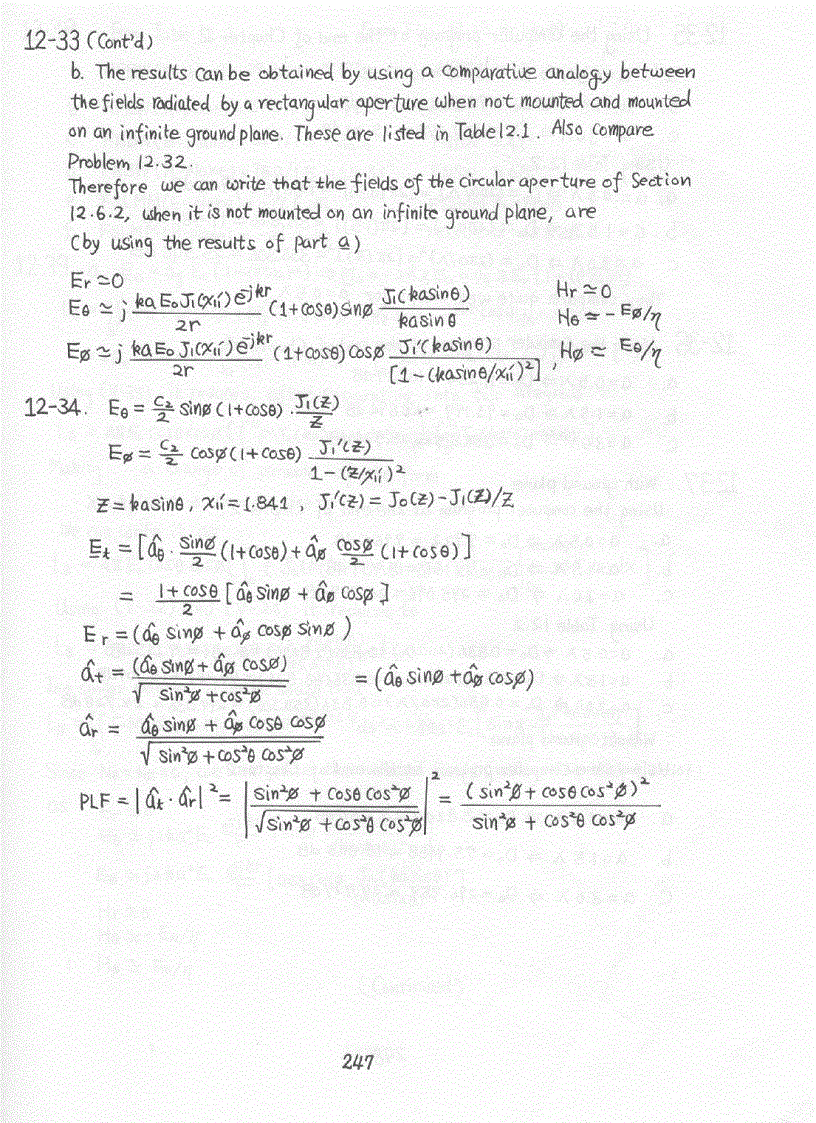 12-33 (Cont'd)
b. The results can be obtained by using a comparative analogy between
the fields radiated by a rectangular aperture when not mounted and mounted
on an infinite ground plane. These are listed in Table 12.1. Also compare
Problem 12.32.
Therefore we can write that the fields of the circular aperture of Section
12.6.2, when it is not mounted on an infinite ground plane, are
(by using the results of part a)
Er ≃ 0    Hr ≃ 0
Eθ ≃ j (ka E₀ J₁(χ₁₁′) e^-jkr / 2r) (1+cosθ) sinø J₁(ka sinθ) / (ka sinθ)    Hθ ≃ - Eø/η
Eø ≃ j (ka E₀ J₁(χ₁₁′) e^-jkr / 2r) (1+cosθ) cosø J₁′(ka sinθ) / [1-(ka sinθ/χ₁₁′)²], Hø ≃ Eθ/η
12-34. Eθ = C₂/2 sinø (1+cosθ) · J₁(Z)/Z
Eø = C₂/2 cosø (1+cosθ) J₁′(Z) / (1-(Z/χ₁₁′)²)
Z = ka sinθ, χ₁₁′ = 1.841, J₁′(Z) = J₀(Z) - J₁(Z)/Z
Et = [âθ · sinø/2 (1+cosθ) + âø cosø/2 (1+cosθ)]
= (1+cosθ)/2 [âθ sinø + âø cosø]
Er = (âθ sinø + âø cosø sinø)
ât = (âθ sinø + âø cosø) / √(sin²ø + cos²ø) = (âθ sinø + âø cosø)
âr = (âθ sinø + âø cosθ cosø) / √(sin²ø + cos²θ cos²ø)
PLF = |ât · âr|² = |(sin²ø + cosθ cos²ø) / √(sin²ø + cos²θ cos²ø)|² = (sin²ø + cosθ cos²ø)² / (sin²ø + cos²θ cos²ø)
247